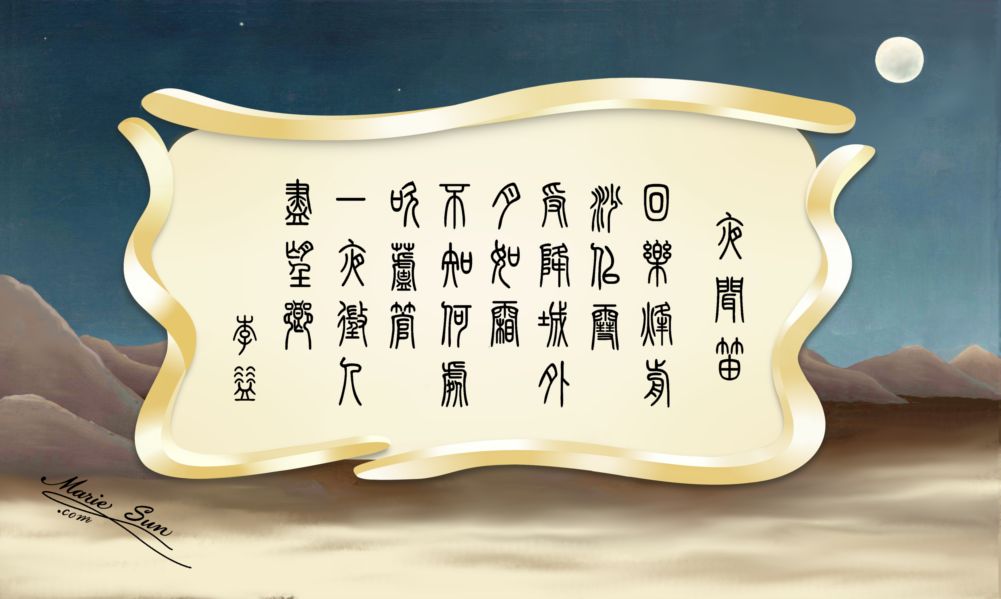 夜聞笛
回樂烽前
沙似雪
受降城外
月如霜
不知何處
吹蘆管
一夜徵人
盡望鄉
李益
Marie Sun
.com